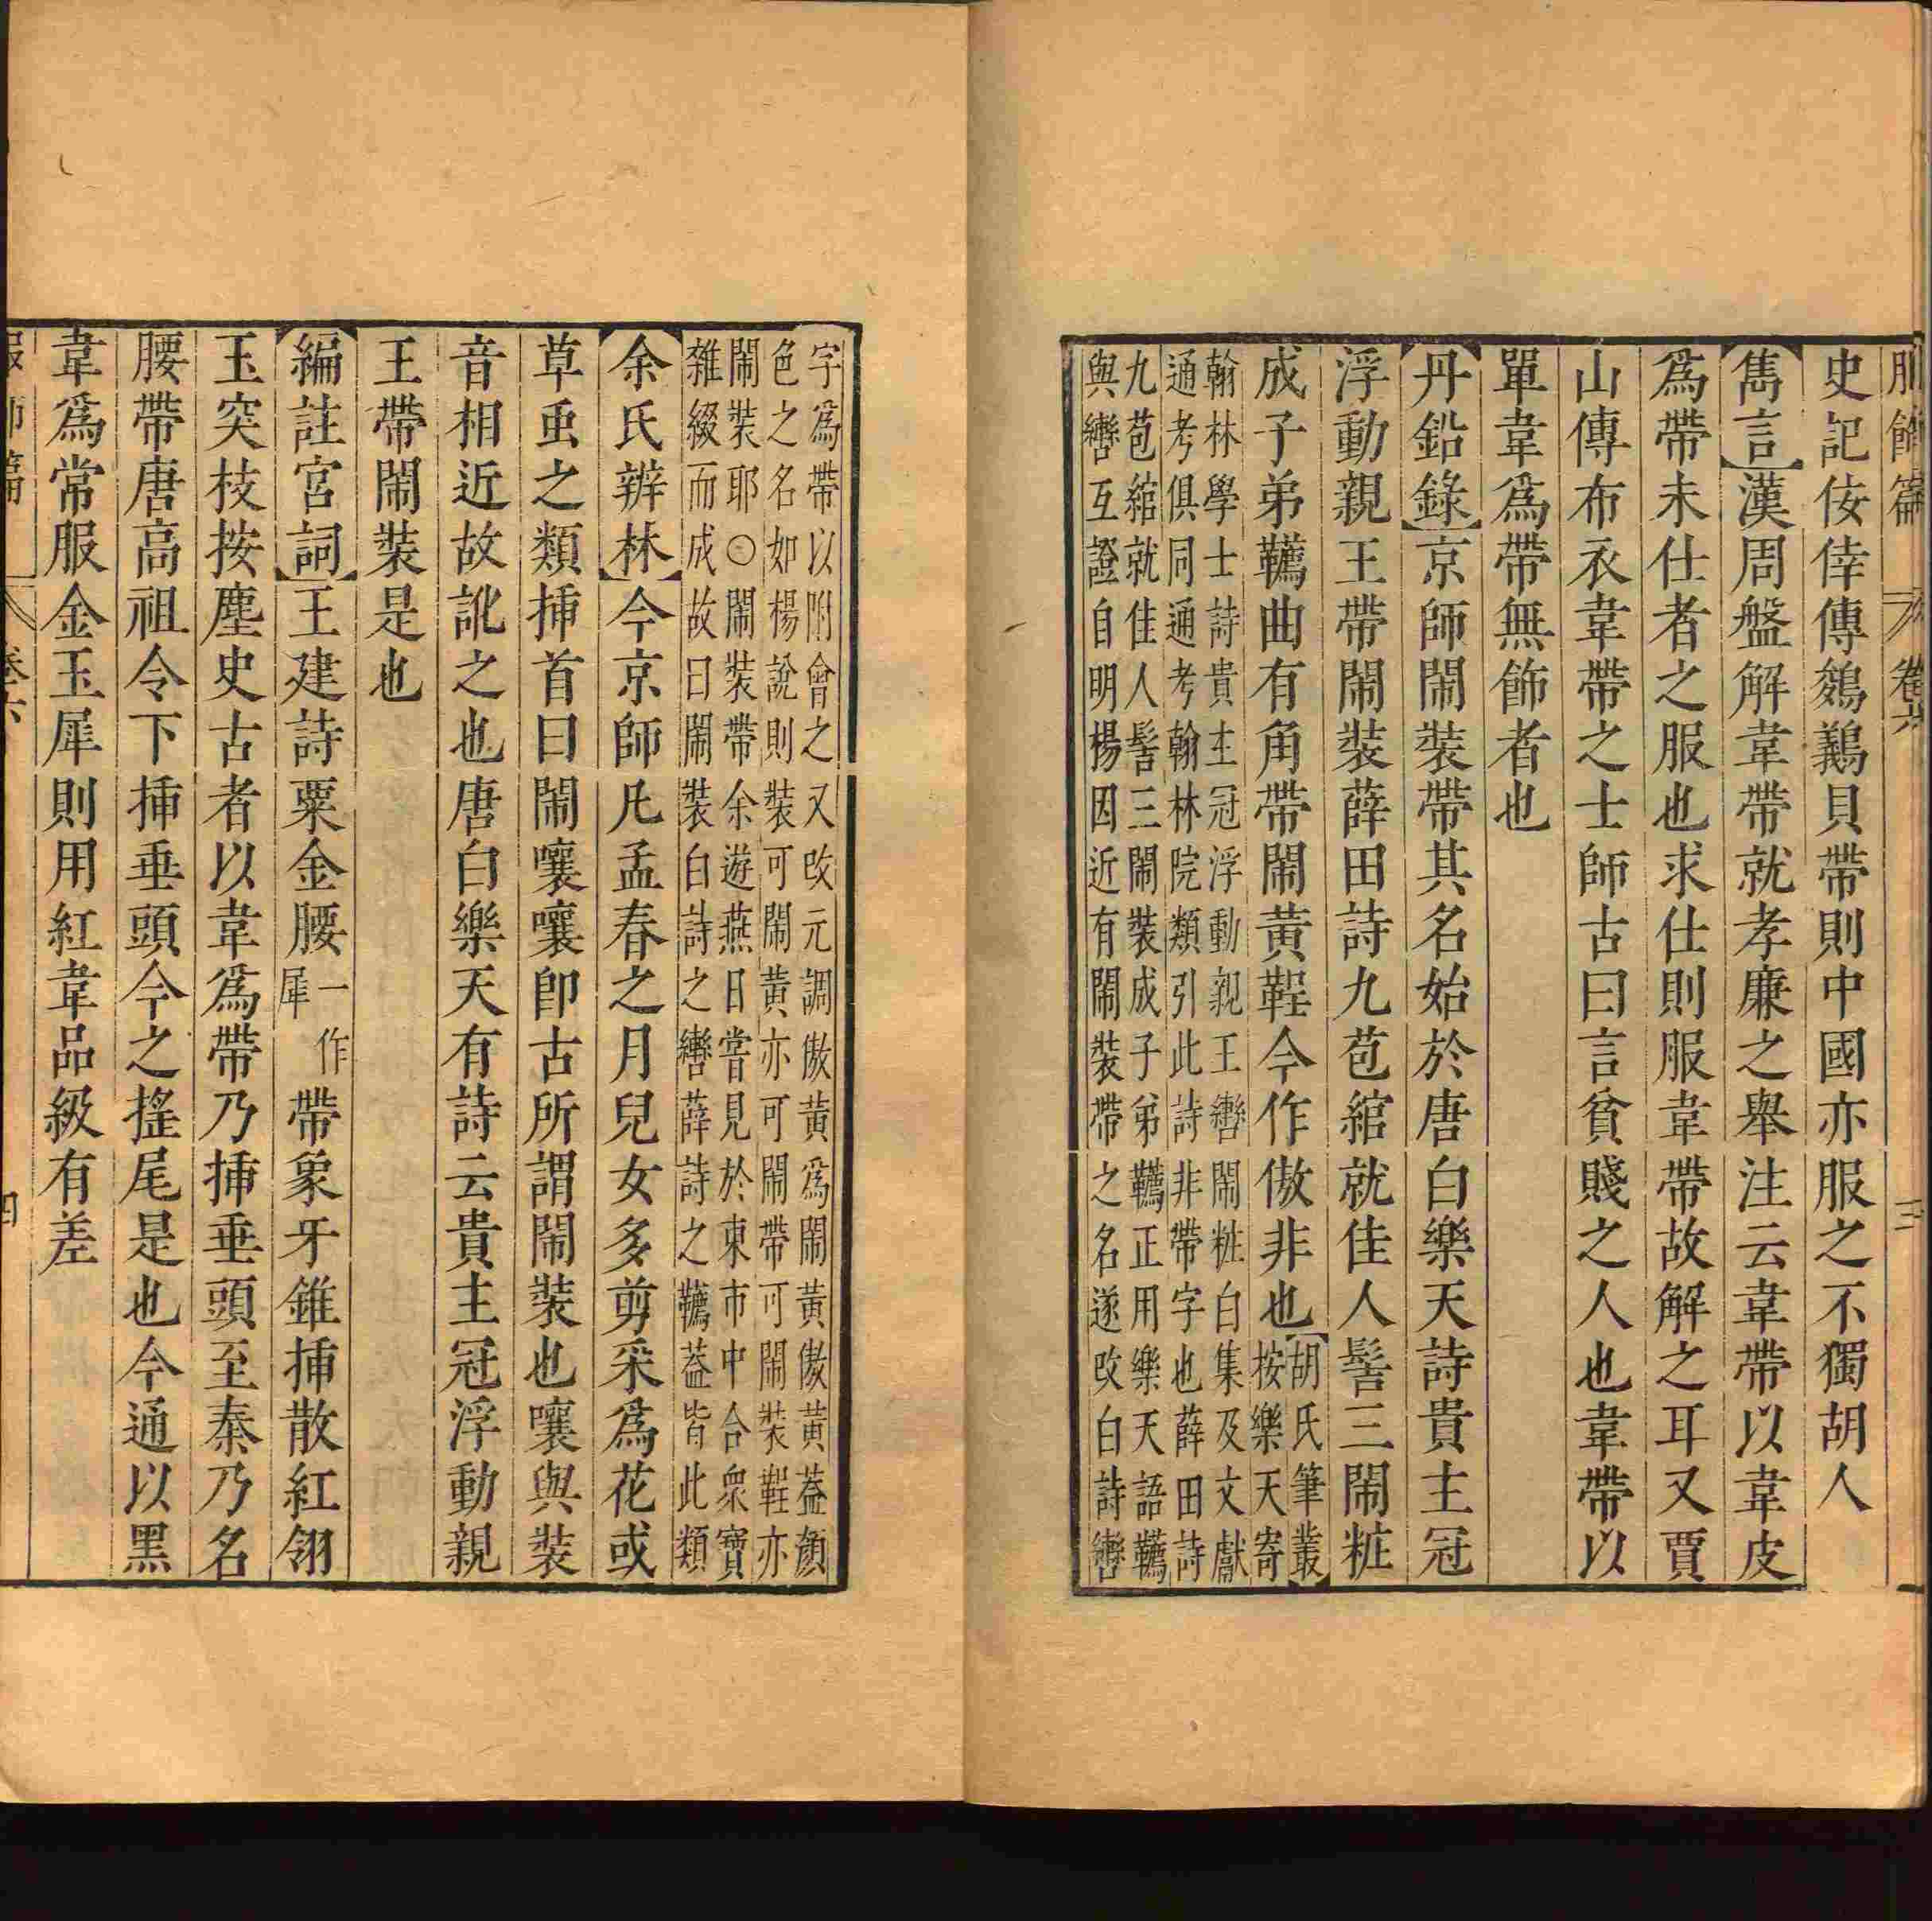 服飾篇 卷六 三
史記佞倖傳鵕鸃貝帶則中國亦服之不獨胡人
雋言漢周盤解韋帶就孝廉之舉注云韋帶以韋皮
爲帶未仕者之服也求仕則服韋帶故解之耳又賈
山傳布衣韋帶之士師古曰言貧賤之人也韋帶以
單韋爲帶無飾者也
丹鉛錄京師鬧裝帶其名始於唐白樂天詩貴主冠
浮動親王帶鬧裝薛田詩九苞綰就佳人髻三鬧粧
成子弟韉曲有角帶鬧黃鞓今作傲非也胡氏筆叢
按樂天寄
翰林學士詩貴主冠浮動親王轡鬧粧白集及文獻
通考俱同通考翰林院類引此詩非帶字也薛田詩
九苞綰就佳人髻三鬧裝成子弟韉正用樂天語韉
與轡互證自明楊因近有鬧裝帶之名遂改白詩轡
字爲帶以附會之又改元調傲黃爲鬧黃傲黃葢顔
色之名如楊說則裝可鬧黃亦可鬧帶可鬧裝鞓亦
鬧裝耶○鬧裝帶余遊燕日嘗見於東市中合衆寶
雜綴而成故曰鬧裝白詩之轡薛詩之韉葢皆此類
余氏辨林今京師凡孟春之月兒女多剪采爲花或
草虫之類挿首曰鬧嚷嚷卽古所謂鬧裝也嚷與裝
音相近故訛之也唐白樂天有詩云貴主冠浮動親
王帶鬧裝是也
編註宮詞王建詩粟金腰一作犀帶象牙錐挿散紅翎
玉突枝按塵史古者以韋爲帶乃挿垂頭至秦乃名
腰帶唐高祖令下挿垂頭今之搖尾是也今通以黑
韋爲常服金玉犀則用紅韋品級有差
服飾篇 卷六 四